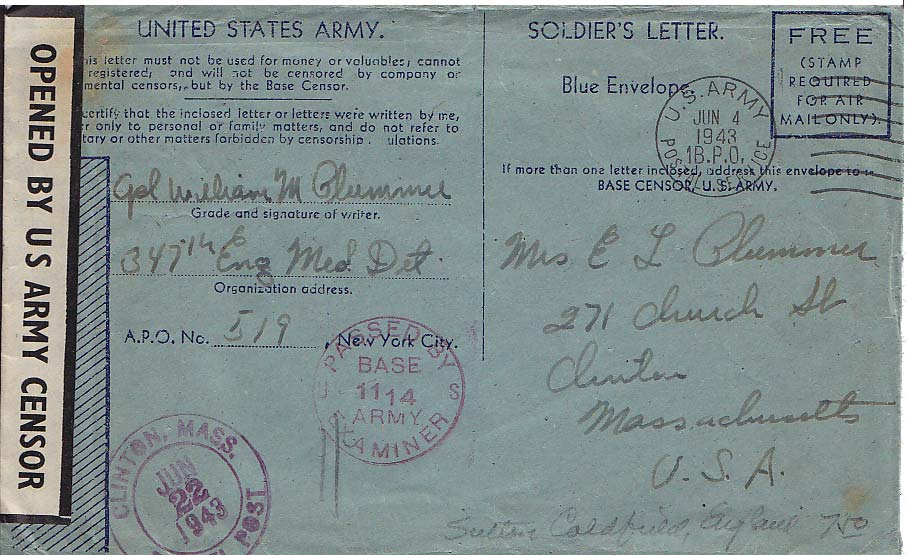 OPENED BY US ARMY CENSOR
UNITED STATES ARMY.
is letter must not be used for money or valuables; cannot
registered; and will not be censored by company or
mental censors, but by the Base Censor.
certify that the inclosed letter or letters were written by me,
r only to personal or family matters, and do not refer to
tary or other matters forbidden by censorship ulations.
Cpl William M Plummer
Grade and signature of writer.
347th E
Eng Med Det.
Organization address.
A.P.O. No. 519, New York City.
PASSED BY
BASE
1114
ARMY
AMINER
U S
CLINTON, MASS.
JUN
22
1943
POST
SOLDIER'S LETTER.
Blue Envelope
FREE
(STAMP
REQUIRED
FOR AIR
MAIL ONLY).
U.S. ARMY
JUN 4
1943
1B.P.O.
POSTAL SERVICE
If more than one letter inclosed, address this envelope to
BASE CENSOR, U.S. ARMY.
Mrs E L Plummer
271 Church St
Clinton
Massachusetts
U.S.A.
Sutton Coldfield, England 7.50